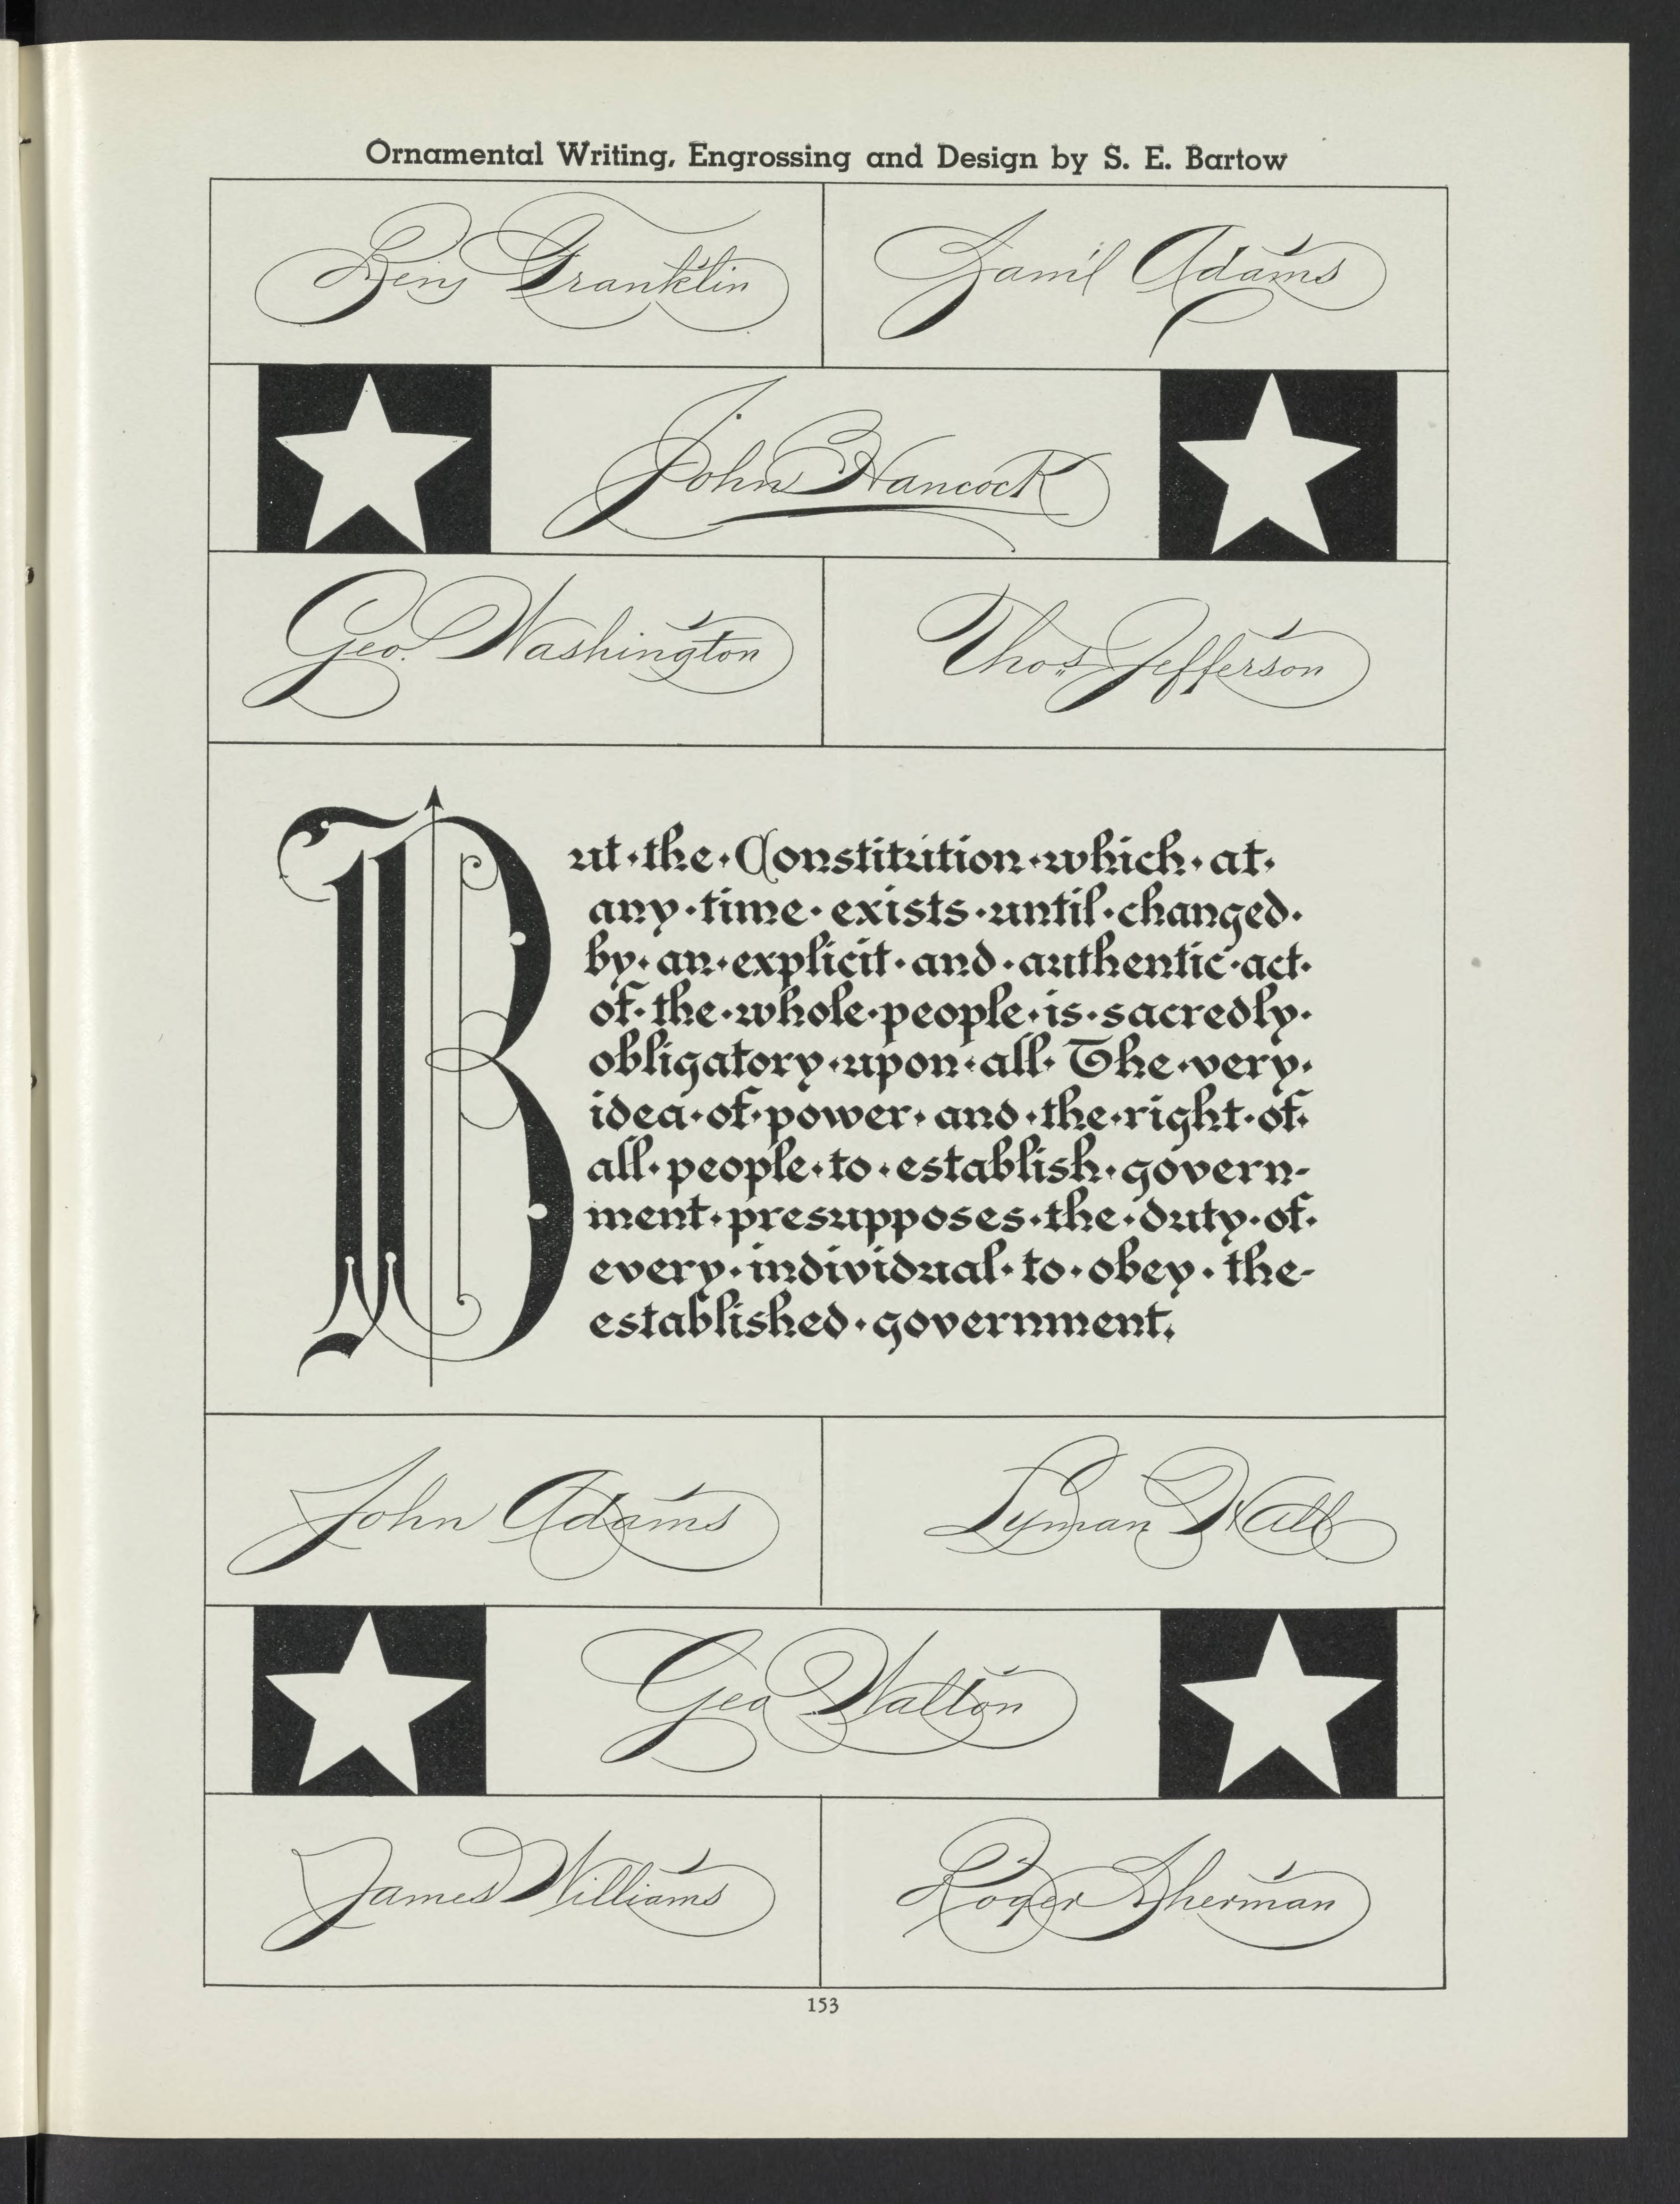 Ornamental Writing, Engrossing and Design by S. E. Bartow
Benj Franklin
Sam'l Adams
John Hancock
Geo. Washington
Thos. Jefferson
But·the·Constitution·which·at·
any·time·exists·until·changed·
by·an·explicit·and·authentic·act·
of·the·whole·people·is·sacredly·
obligatory·upon·all·The·very·
idea·of·power·and·the·right·of·
all·people·to·establish·govern-
ment·presupposes·the·duty·of·
every·individual·to·obey·the-
established·government.
John Adams
Lyman Hall
Geo Walton
James Williams
Roger Sherman
153